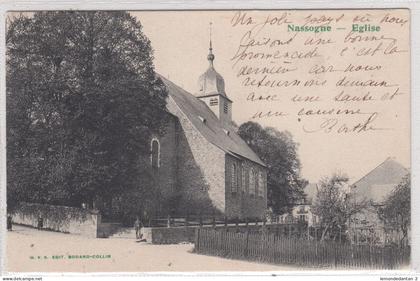 Nassogne — Eglise
Un joli pays où nous
faisons une bonne
promenade, c'est la
dernière car nous
retournons demain
avec une tante et
une cousine
Berthe
M. V. S. EDIT. BODARD-COLLIN